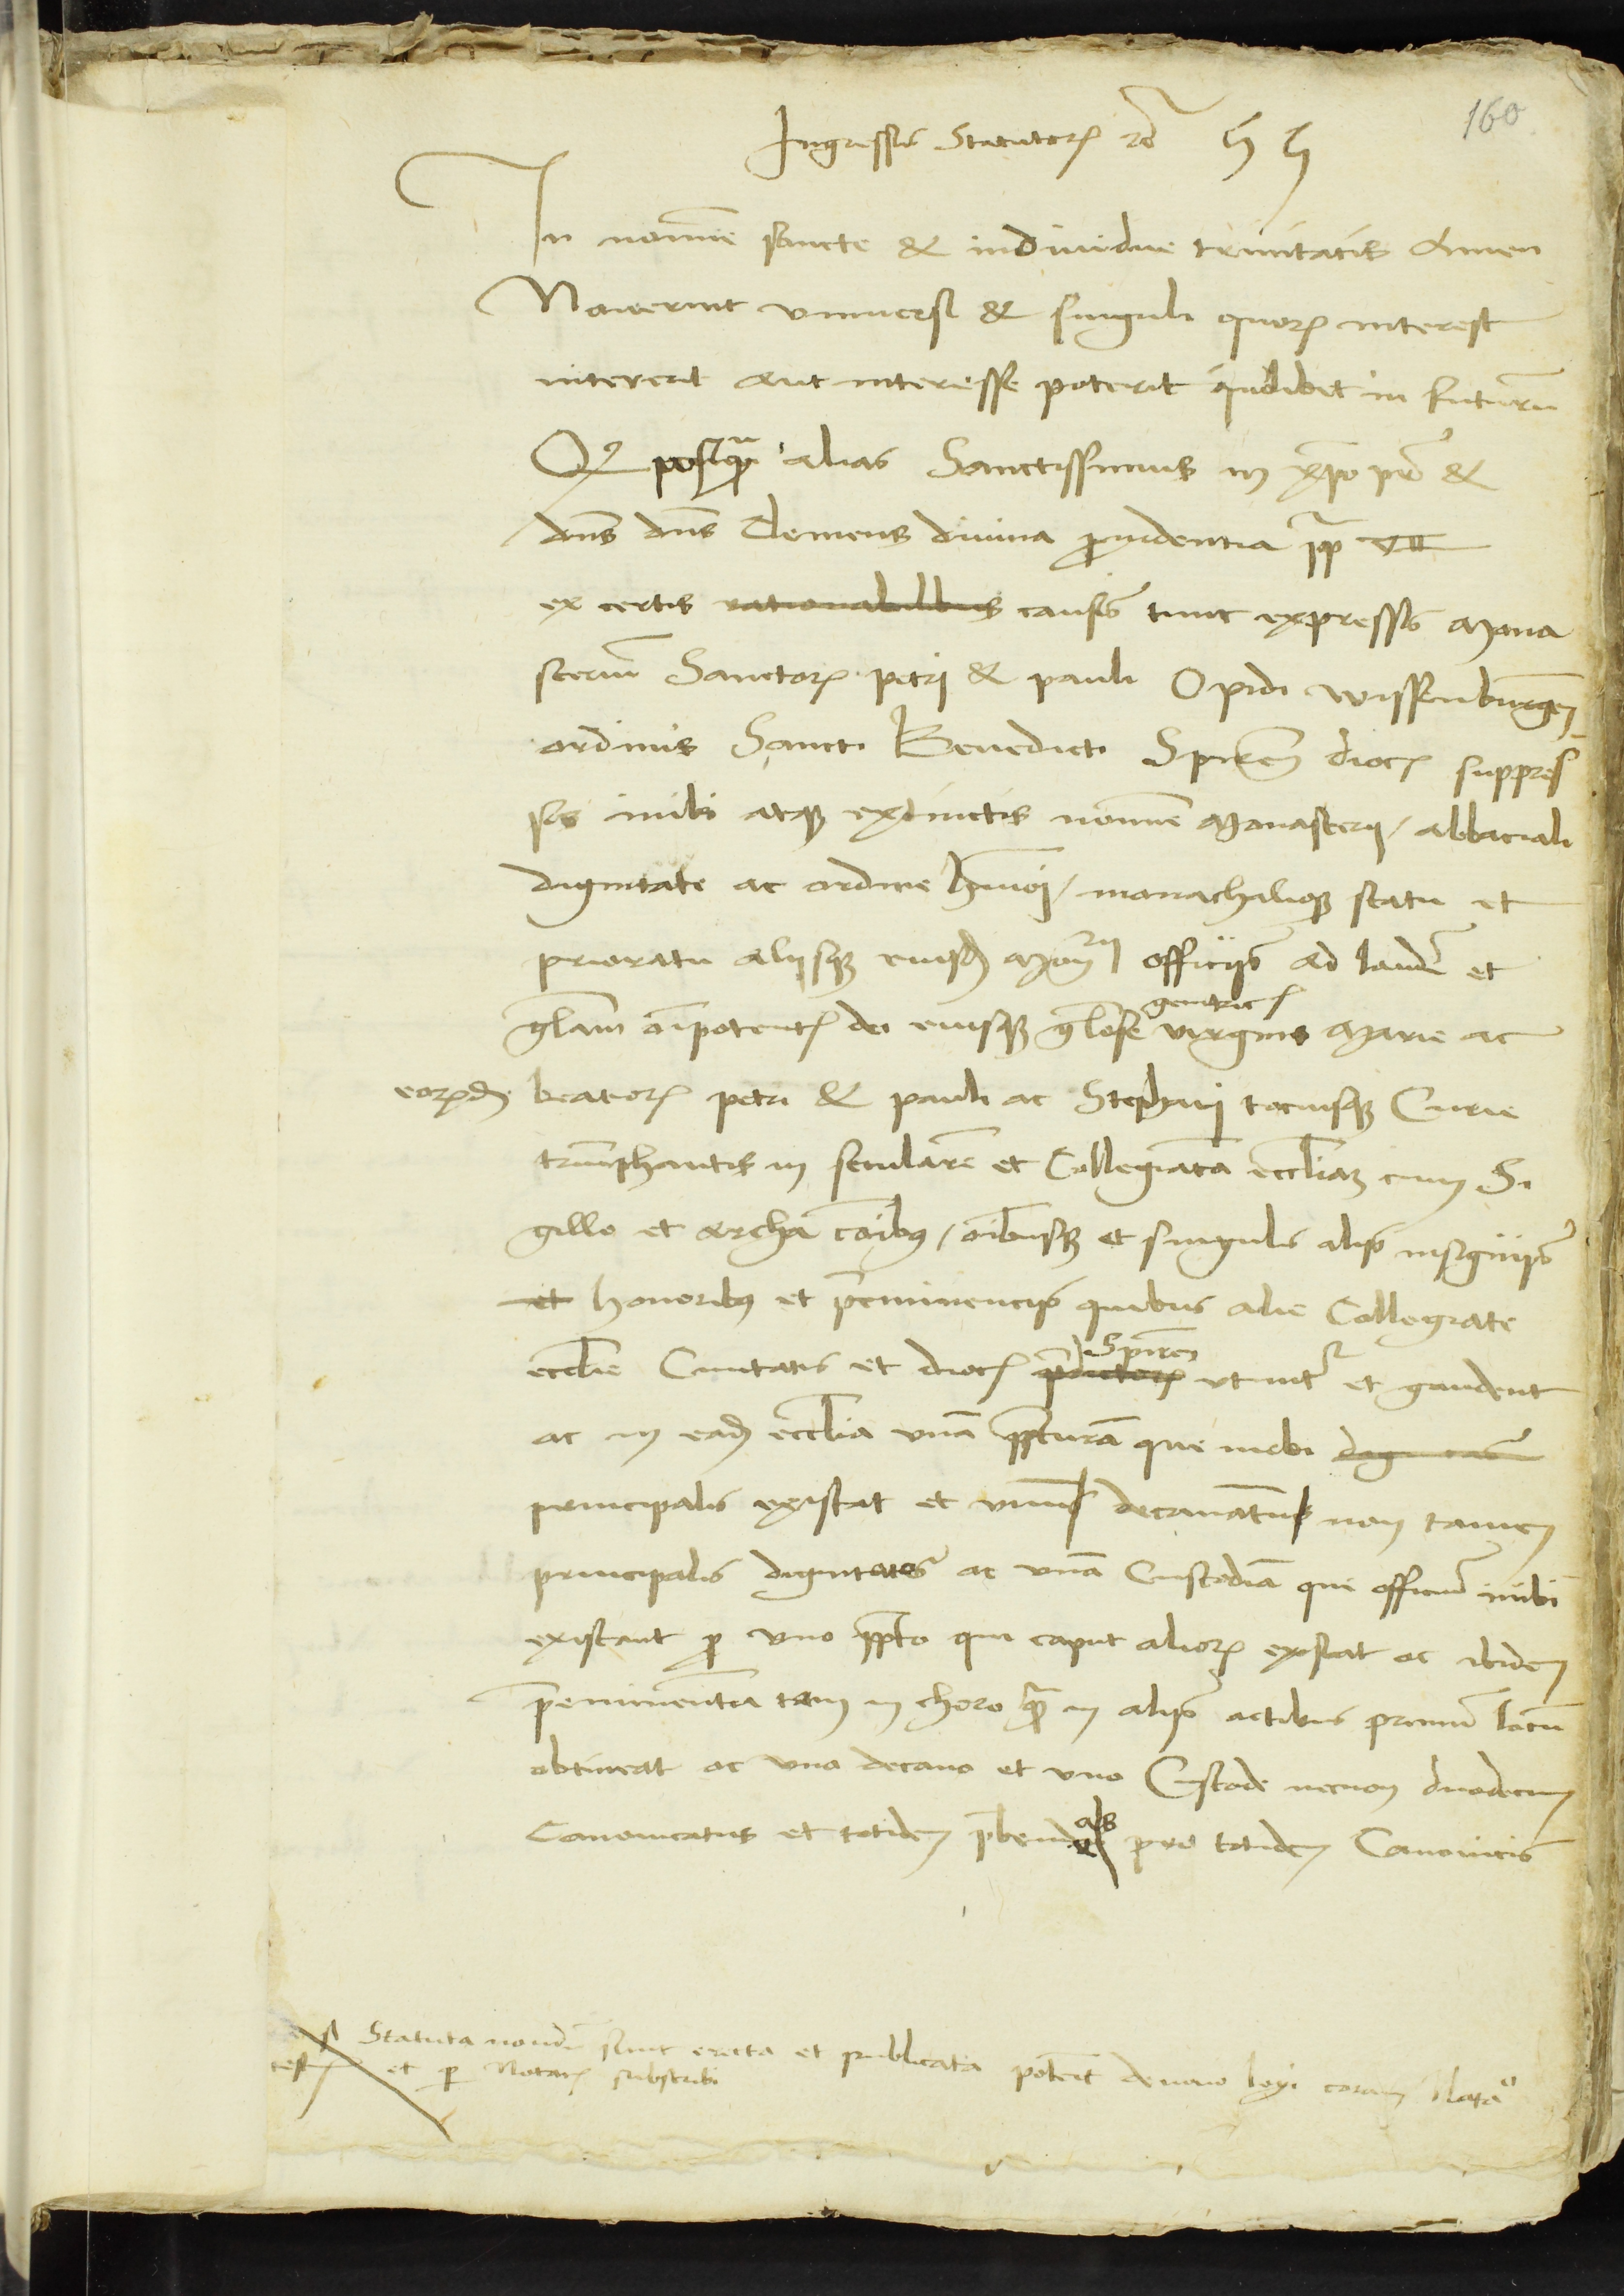 160
Ingressus Statutor(um)
In no(m)i(n)e sancte & individue trinitatis Amen
Noverint universi & singuli quor(um) interest
intererit aut interesse poterit quolibet in futuru(m)
Q(uod) postq(uam) alias Sanctissimus in (Christ)o p(ate)r &
d(omi)n(u)s d(omi)n(u)s Clemens divina p(ro)videntia p(a)p(a) VII
ex certis rationabilibus causis tunc expressis Mona
steriu(m) Sanctor(um) petri & pauli Opidi wissenburgen(sis)
ordinis Sancti Benedicti Spiren(sis) dioc(esis) suppres
sis inibi atq(ue) extinctis nomine Monasterij / abbatiali
dignitate ac ordine h(uius)moi / monachaliq(ue) statu et
prioratu alijsq(ue) eiusd(em) Mon(aste)rij officijs ad laude(m) et
gl(ori)am o(mn)ipotent(is) dei eiusq(ue) gl(ori)ose genitric(is) virginis Marie ac
eor(un)d(em) beator(um) petri & pauli ac Stephani totiusq(ue) Curie
triu(m)phantis in seculare(m) et Collegiata(m) eccl(es)iam cum Si
gillo et archa co(mmun)ibus / o(mn)ibusq(ue) et singulis alijs insignijs
et honoribus et p(re)eminencijs quibus alie Collegiate
eccl(es)ie Civitatis et dioc(esis) p(re)dictor(um) Spiren(sis) utunt(ur) et gaudent
ac in ead(em) eccl(es)ia una(m) p(re)p(osi)tura(m) que inibi dignitas
principalis existat et unus decanatus non tamen
principalis dignitatis ac una(m) Custodia(m) que officiu(m) inibi
existant p(ro) uno p(re)p(osi)to qui caput alior(um) existat ac ibidem
p(re)eminentia(m) tam in choro q(uam) in alijs actibus primu(m) locu(m)
obtineat ac uno decano et uno Custode necnon duodecim
Canonicatus et totidem p(re)bendas pro totidem Canonicis
si Statuta nondu(m) sunt erecta et publicata poteru(n)t denovo legi coram Nota(ri)o
test(ibus) et p(er) Notar(ium) subscribi